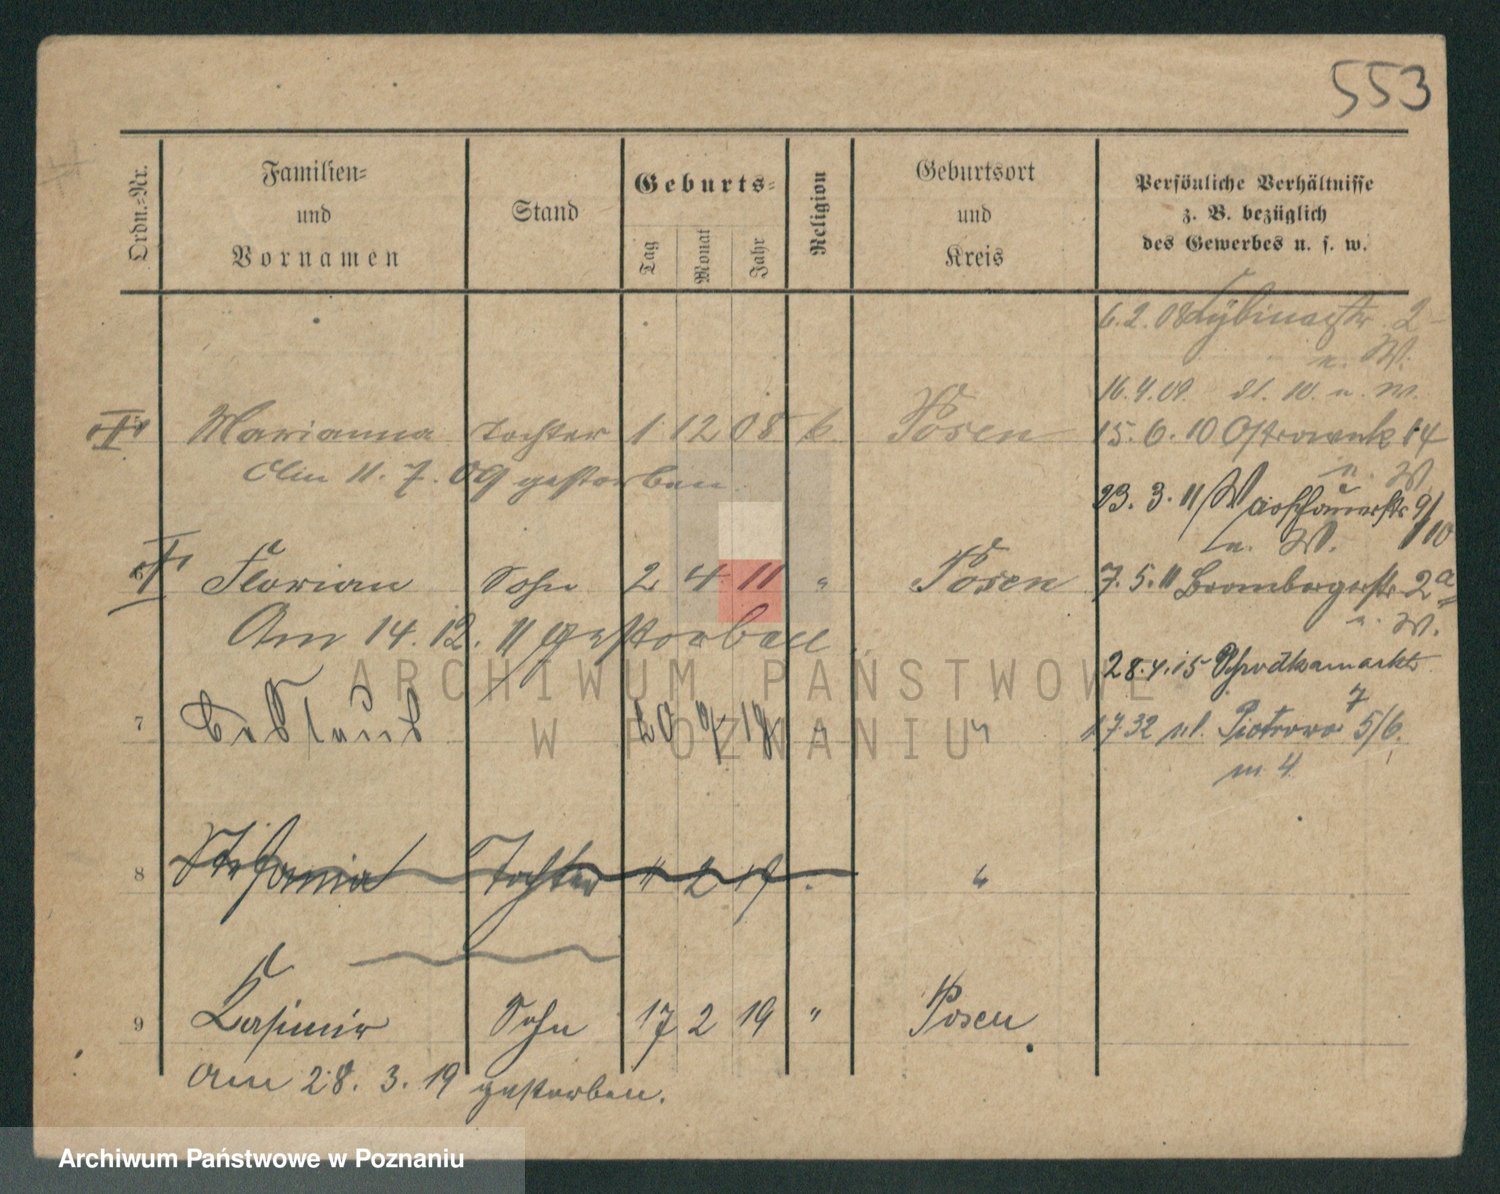 553
Ordn.-Nr.
Familien- und Vornamen
Stand
Geburts-
Tag
Monat
Jahr
Religion
Geburtsort und Kreis
Persönliche Verhältnisse
z. B. bezüglich
des Gewerbes u. s. w.
6.2.08 2
u. W.
16.4.09 10 u. W.
Marianna Tochter 1 12 08 k. Posen
15.6.10 14
u. W.
Am 11.7.09 gestorben.
23.3.11 9/10
u. W.
Florian Sohn 2 4 11 " Posen
7.5.11 Brombergerstr. 2a
u. W.
Am 14.12.11 gestorben
28.4.15 Schrodkamarkt 7
ARCHIWUM PAŃSTWOWE
W POZNANIU
7 20 9 18 " "
1732 ul. Piotrowo 5/6.
m. 4
8 Stefania Tochter 4 2 17 . "
9 Kasimir Sohn 17 2 19 " Posen
Am 28.3.19 gestorben.
Archiwum Państwowe w Poznaniu